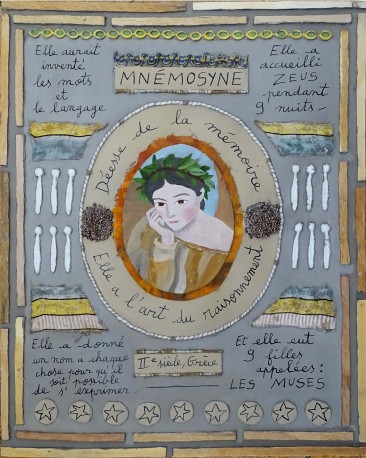 Elle aurait
inventé
les mots
et
le langage
MNÉMOSYNE
Elle a
accueilli
ZEUS
pendant
9 nuits -
Déesse de la mémoire
Elle a l'art du raisonnement
Elle a donné
un nom a chaque
chose pour qu'il
soit possible
de s'exprimer
II e siècle, Grèce
Et elle eut
9 filles
appelées :
LES MUSES